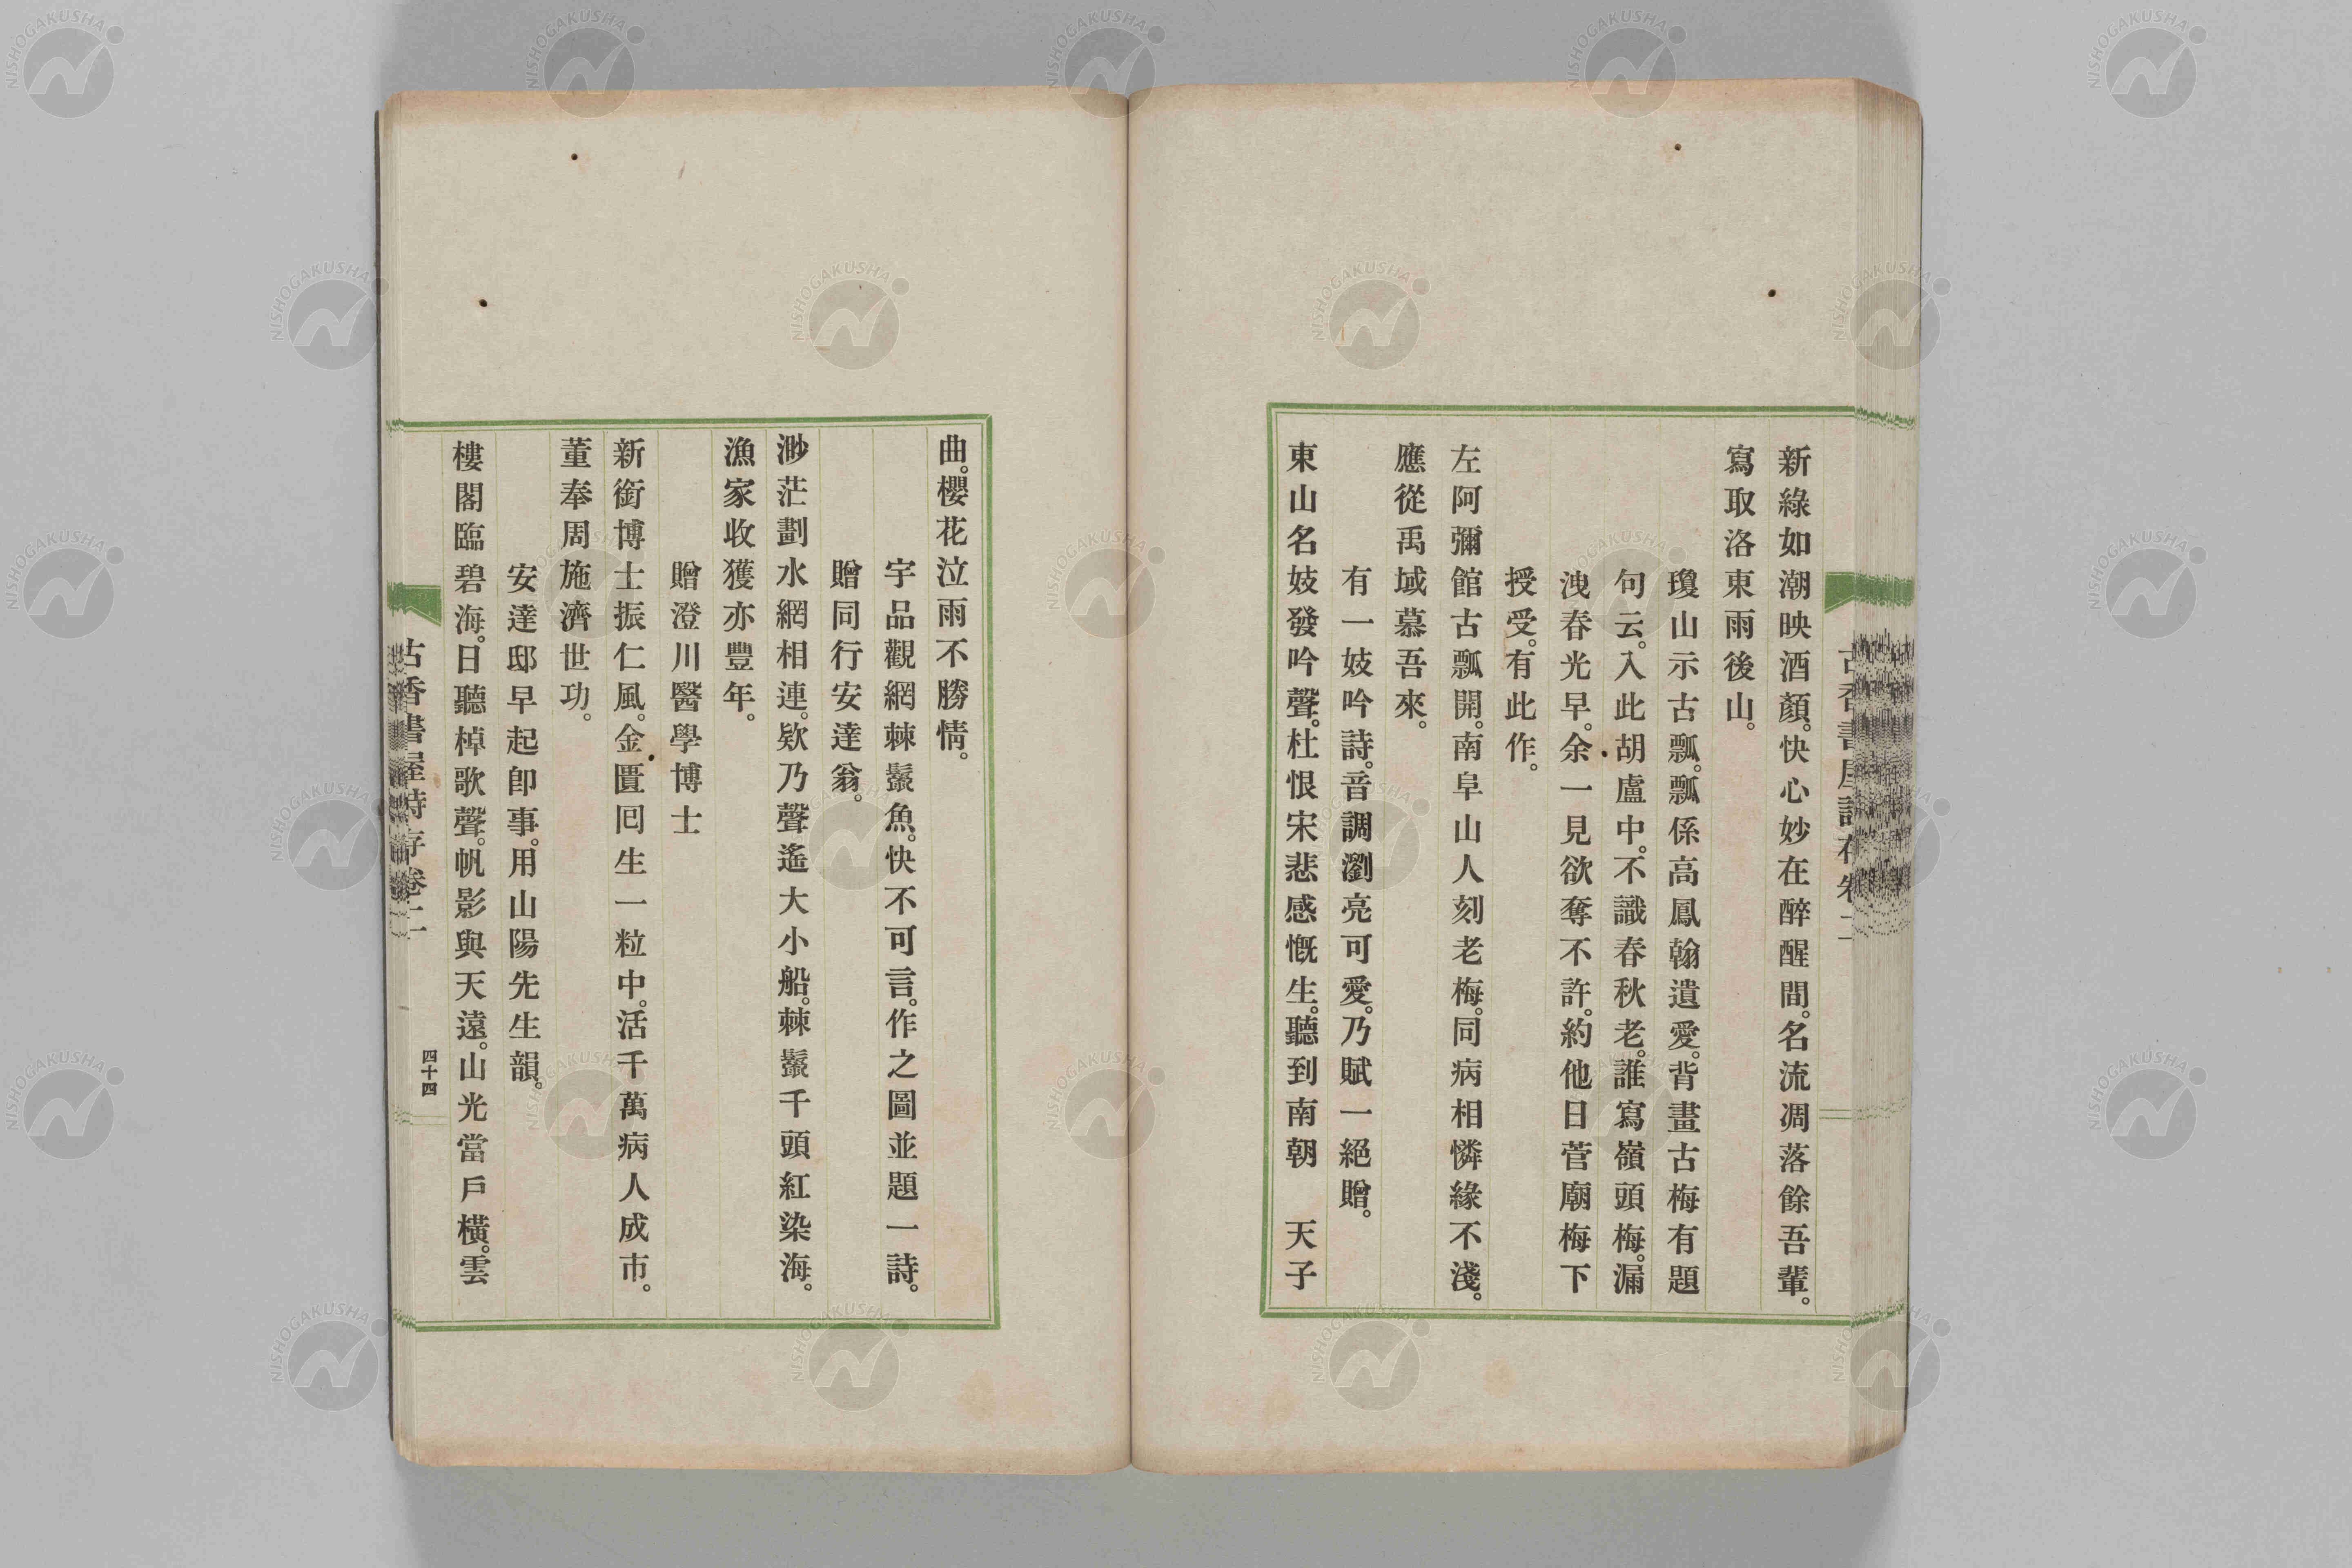 新綠如潮映酒顏。快心妙在醉醒間。名流凋落餘吾輩。
寫取洛東雨後山。
瓊山示古瓢。瓢係高鳳翰遺愛。背畫古梅有題
句云。入此胡盧中。不識春秋老。誰寫嶺頭梅。漏
洩春光早。余一見欲奪不許。約他日菅廟梅下
授受。有此作。
左阿彌館古瓢開。南阜山人刻老梅。同病相憐緣不淺。
應從禹域慕吾來。
有一妓吟詩。音調瀏亮可愛。乃賦一絕贈。
東山名妓發吟聲。杜恨宋悲感慨生。聽到南朝　天子
曲。櫻花泣雨不勝情。
宇品觀網棘鬣魚。快不可言。作之圖並題一詩。
贈同行安達翁。
渺茫劃水網相連。欸乃聲遙大小船。棘鬣千頭紅染海。
漁家收獲亦豐年。
贈澄川醫學博士
新銜博士振仁風。金匱囘生一粒中。活千萬病人成市。
董奉周施濟世功。
安達邸早起卽事。用山陽先生韻。
樓閣臨碧海。日聽棹歌聲。帆影與天遠。山光當戶橫。雲
古香書屋詩存卷二
四十四
NISHOGAKUSHA